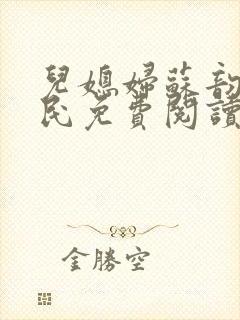 兒媳婦蘇韵
民免費閱讀
金勝空